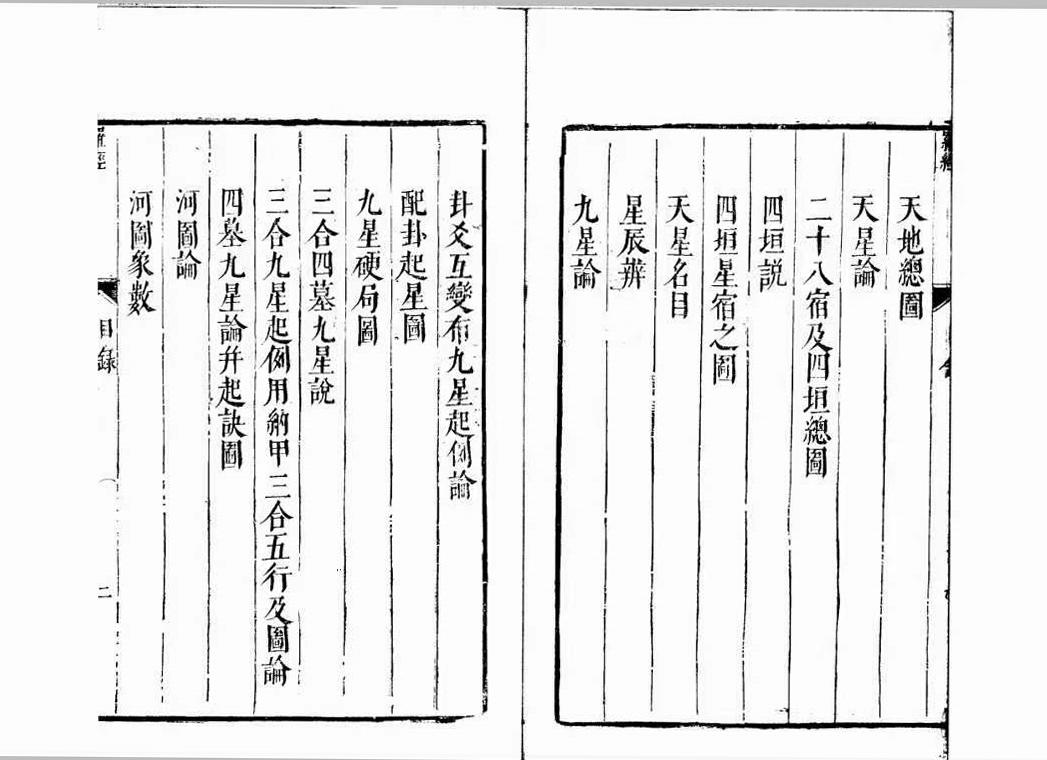 天地總圖
天星論
二十八宿及四垣總圖
四垣説
四垣星宿之圖
天星名目
星辰辨
九星論
卦爻互變布九星起例論
配卦起星圖
九星硬局圖
三合四墓九星說
三合九星起例用納甲三合五行及圖論
四墓九星論并起訣圖
河圖論
河圖象數
羅經
目錄
二